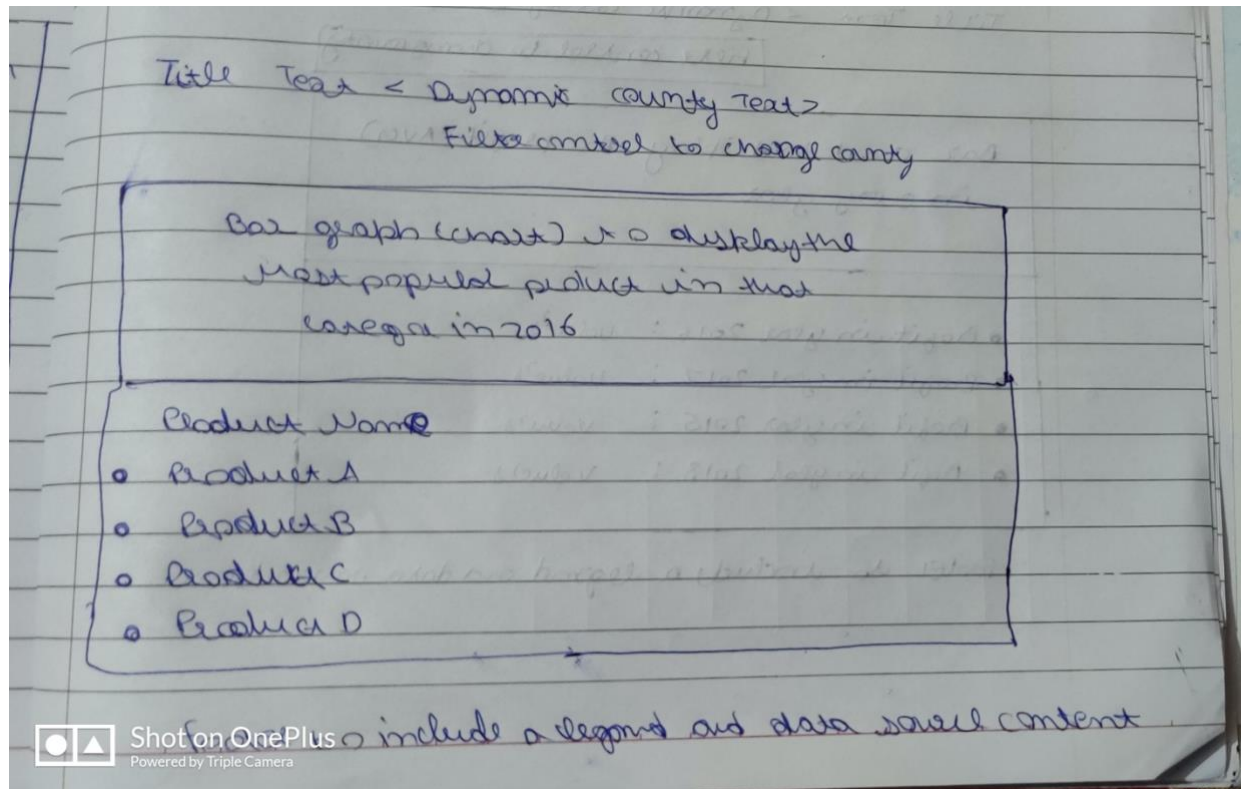 Title Text < Dynamic county Text>
Filter control to change county
Bar graph (chart) to display the
Most popular product in that
in 2016
Product Name
Product A
Product B
Product C
Product D
to include a legend and data source content
Shot on OnePlus
Powered by Triple Camera